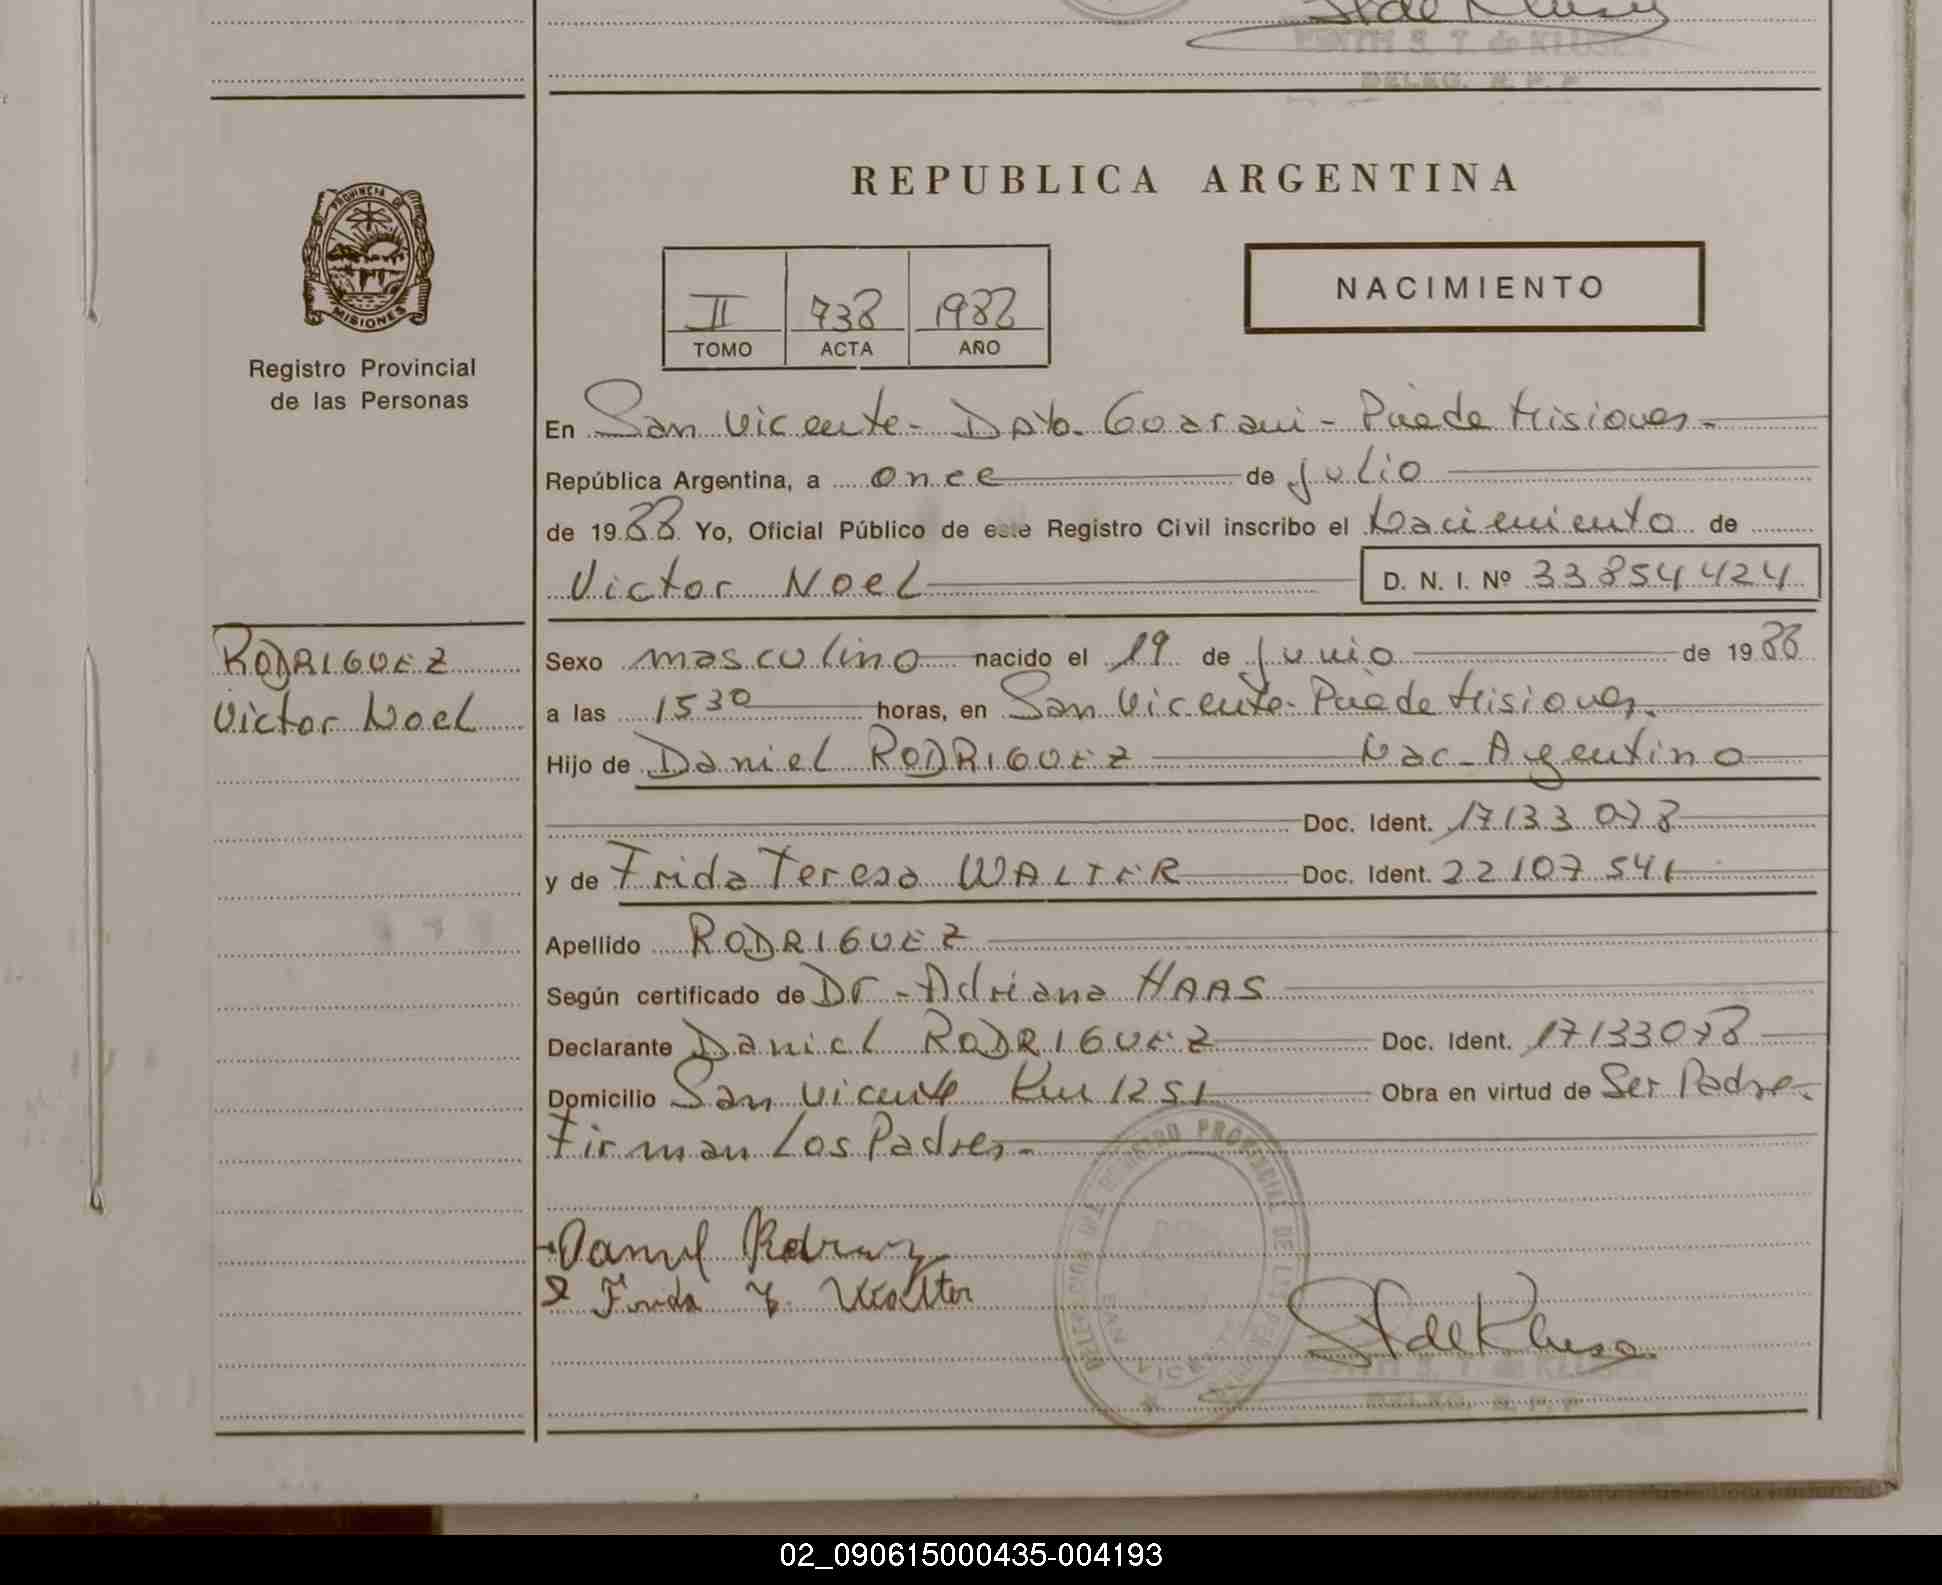 EDITH S. T. de KLUSE
DELEG. R. P. P
REPUBLICA ARGENTINA
PROVINCIA DE
MISIONES
Registro Provincial
de las Personas
NACIMIENTO
II 738 1988
TOMO ACTA AÑO
En San Vicente - Dpto. Guarani - Pciade Misiones -
República Argentina, a once de julio
de 1988 Yo, Oficial Público de este Registro Civil inscribo el Nacimiento de
Victor Noel D. N. I. Nº 33854424
RODRIGUEZ
Victor Noel
Sexo masculino nacido el 19 de junio de 1988
a las 15 30 horas, en San Vicente - Pciade Misiones.
Hijo de Daniel RODRIGUEZ Nac - Argentino
Doc. Ident. 17133 078
y de Frida Teresa WALTER Doc. Ident. 22107 541
Apellido RODRIGUEZ
Según certificado de Dr - Adriana HAAS
Declarante Daniel RODRIGUEZ Doc. Ident. 17133078
Domicilio San Vicente Km 1251 Obra en virtud de Ser Padre -
Firman Los Padres -
Daniel Rodriguez
Frida T. Walter
REGISTRO PROVINCIAL DE LAS PER
SAN VICENTE
ST de Kluse
EDITH S. T. de KLUSE
DELEG. R. P. P
02_090615000435-004193